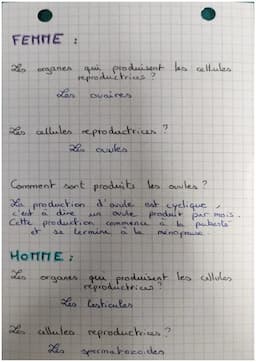 FEMME :
Les organes qui produisent les cellules
reproductrices ?
Les ovaires
Les cellules reproductrices ?
Les ovules
Comment sont produits les ovules ?
La production d'ovule est cyclique,
c'est à dire un ovule produit par mois.
Cette production commence à la puberté
et se termine à la ménopause
HOMME :
Les organes qui produisent les cellules
reproductrices ?
Les testicules
Les cellules reproductrices ?
Les spermatozoïdes